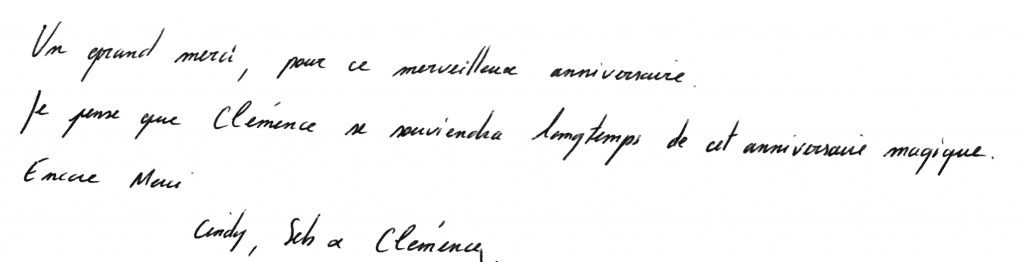 Un grand merci, pour ce merveilleux anniversaire.
Je pense que Clémence se souviendra longtemps de cet anniversaire magique.
Encore Merci
Cindy, Seb & Clémence